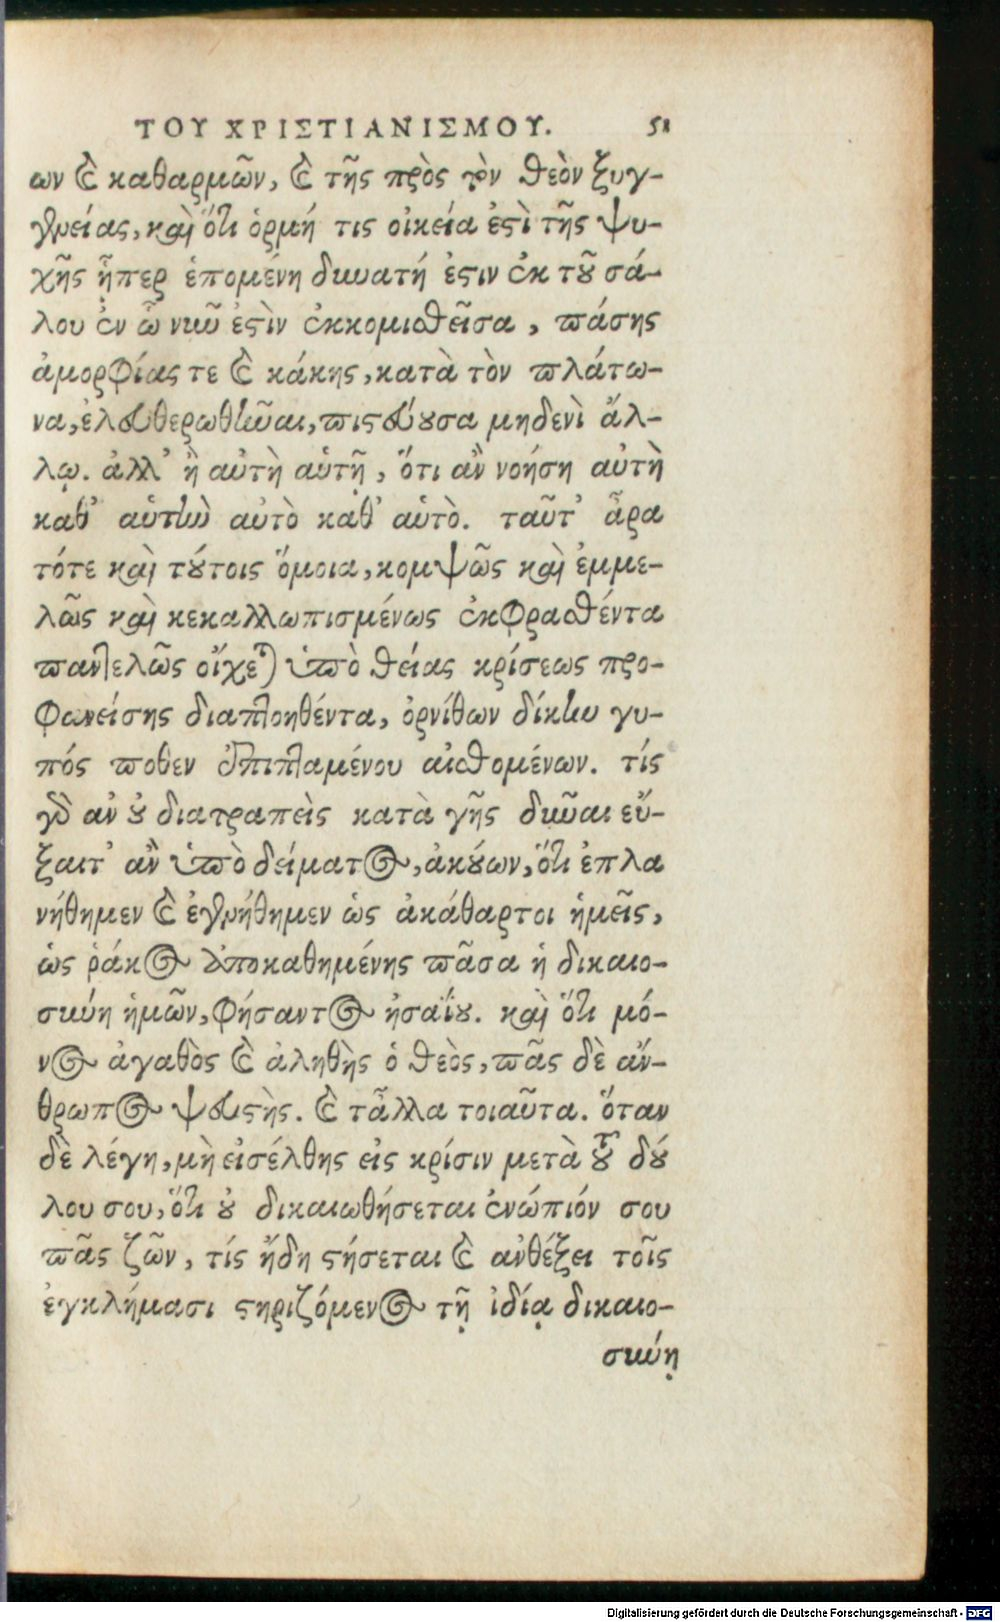 ΤΟΥ ΧΡΙΣΤΙΑΝΙΣΜΟΥ. 51
ων καὶ καθαρμῶν, καὶ τῆς πρὸς τὸν θεὸν ξυγ-
γενείας, καὶ ὅτι ὁρμή τις οἰκεία ἐστὶ τῆς ψυ-
χῆς ᾗπερ ἑπομένη δυνατή ἐστιν ἐκ τοῦ σά-
λου ἐν ὧ νῦν ἐστὶν ἐκκομισθεῖσα, πάσης
ἀμορφίας τε καὶ κάκης, κατὰ τὸν πλάτω-
να, ἐλευθερωθῆναι, πιστεύουσα μηδενὶ ἄλ-
λῳ. ἀλλ' ἢ αὐτὴ αὑτῇ, ὅτι ἂν νοήση αὐτὴ
καθ' αὑτὴν αὐτὸ καθ' αὑτὸ. ταῦτ' ἆρα
τότε καὶ τούτοις ὅμοια, κομψῶς καὶ ἐμμε-
λῶς καὶ κεκαλλωπισμένως ἐκφρασθέντα
παντελῶς οἴχεται ὑπὸ θείας κρίσεως προ-
φανείσης διαπτοηθέντα, ὀρνίθων δίκην γυ-
πός ποθεν ἐπιπταμένου αἰσθομένων. τίς
γὰρ ἂν οὐ διατραπεὶς κατὰ γῆς δῦναι εὔ-
ξαιτ' ἂν ὑπὸ δείματος, ἀκούων, ὅτι ἐπλα
νήθημεν καὶ ἐγενήθημεν ὡς ἀκάθαρτοι ἡμεῖς,
ὡς ῥάκος ἀποκαθημένης πᾶσα ἡ δικαιο-
σύνη ἡμῶν, φήσαντος ἠσαΐου. καὶ ὅτι μό-
νος ἀγαθὸς καὶ ἀληθὴς ὁ θεὸς, πᾶς δὲ ἄν-
θρωπος ψευστὴς. καὶ τἆλλα τοιαῦτα. ὅταν
δὲ λέγη, μὴ εἰσέλθης εἰς κρίσιν μετὰ τοῦ δού
λου σου, ὅτι οὐ δικαιωθήσεται ἐνώπιόν σου
πᾶς ζῶν, τίς ἤδη στήσεται καὶ ἀνθέξει τοῖς
ἐγκλήμασι στηριζόμενος τῇ ἰδίᾳ δικαιο-
σύνῃ
Digitalisierung gefördert durch die Deutsche Forschungsgemeinschaft - DFG